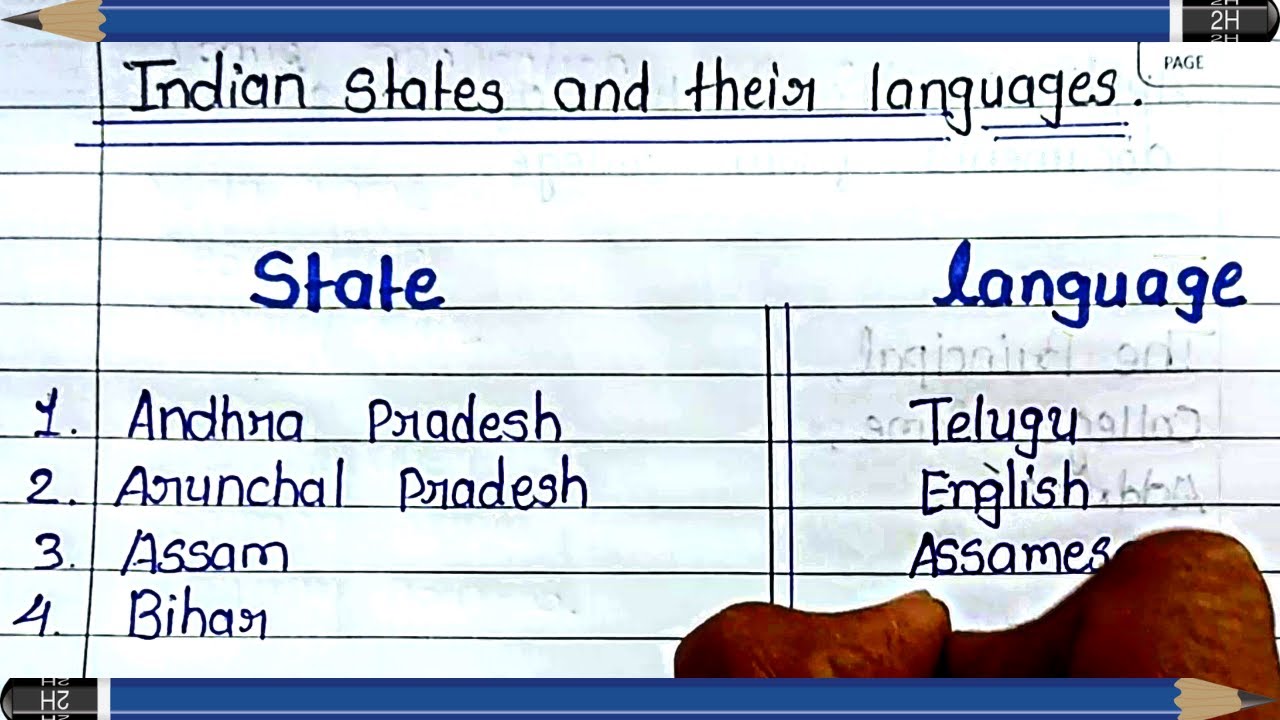 2H
PAGE
Indian states and their languages.
State language
1. Andhra Pradesh Telugu
2. Arunchal Pradesh English
3. Assam Assames
4. Bihar
2H